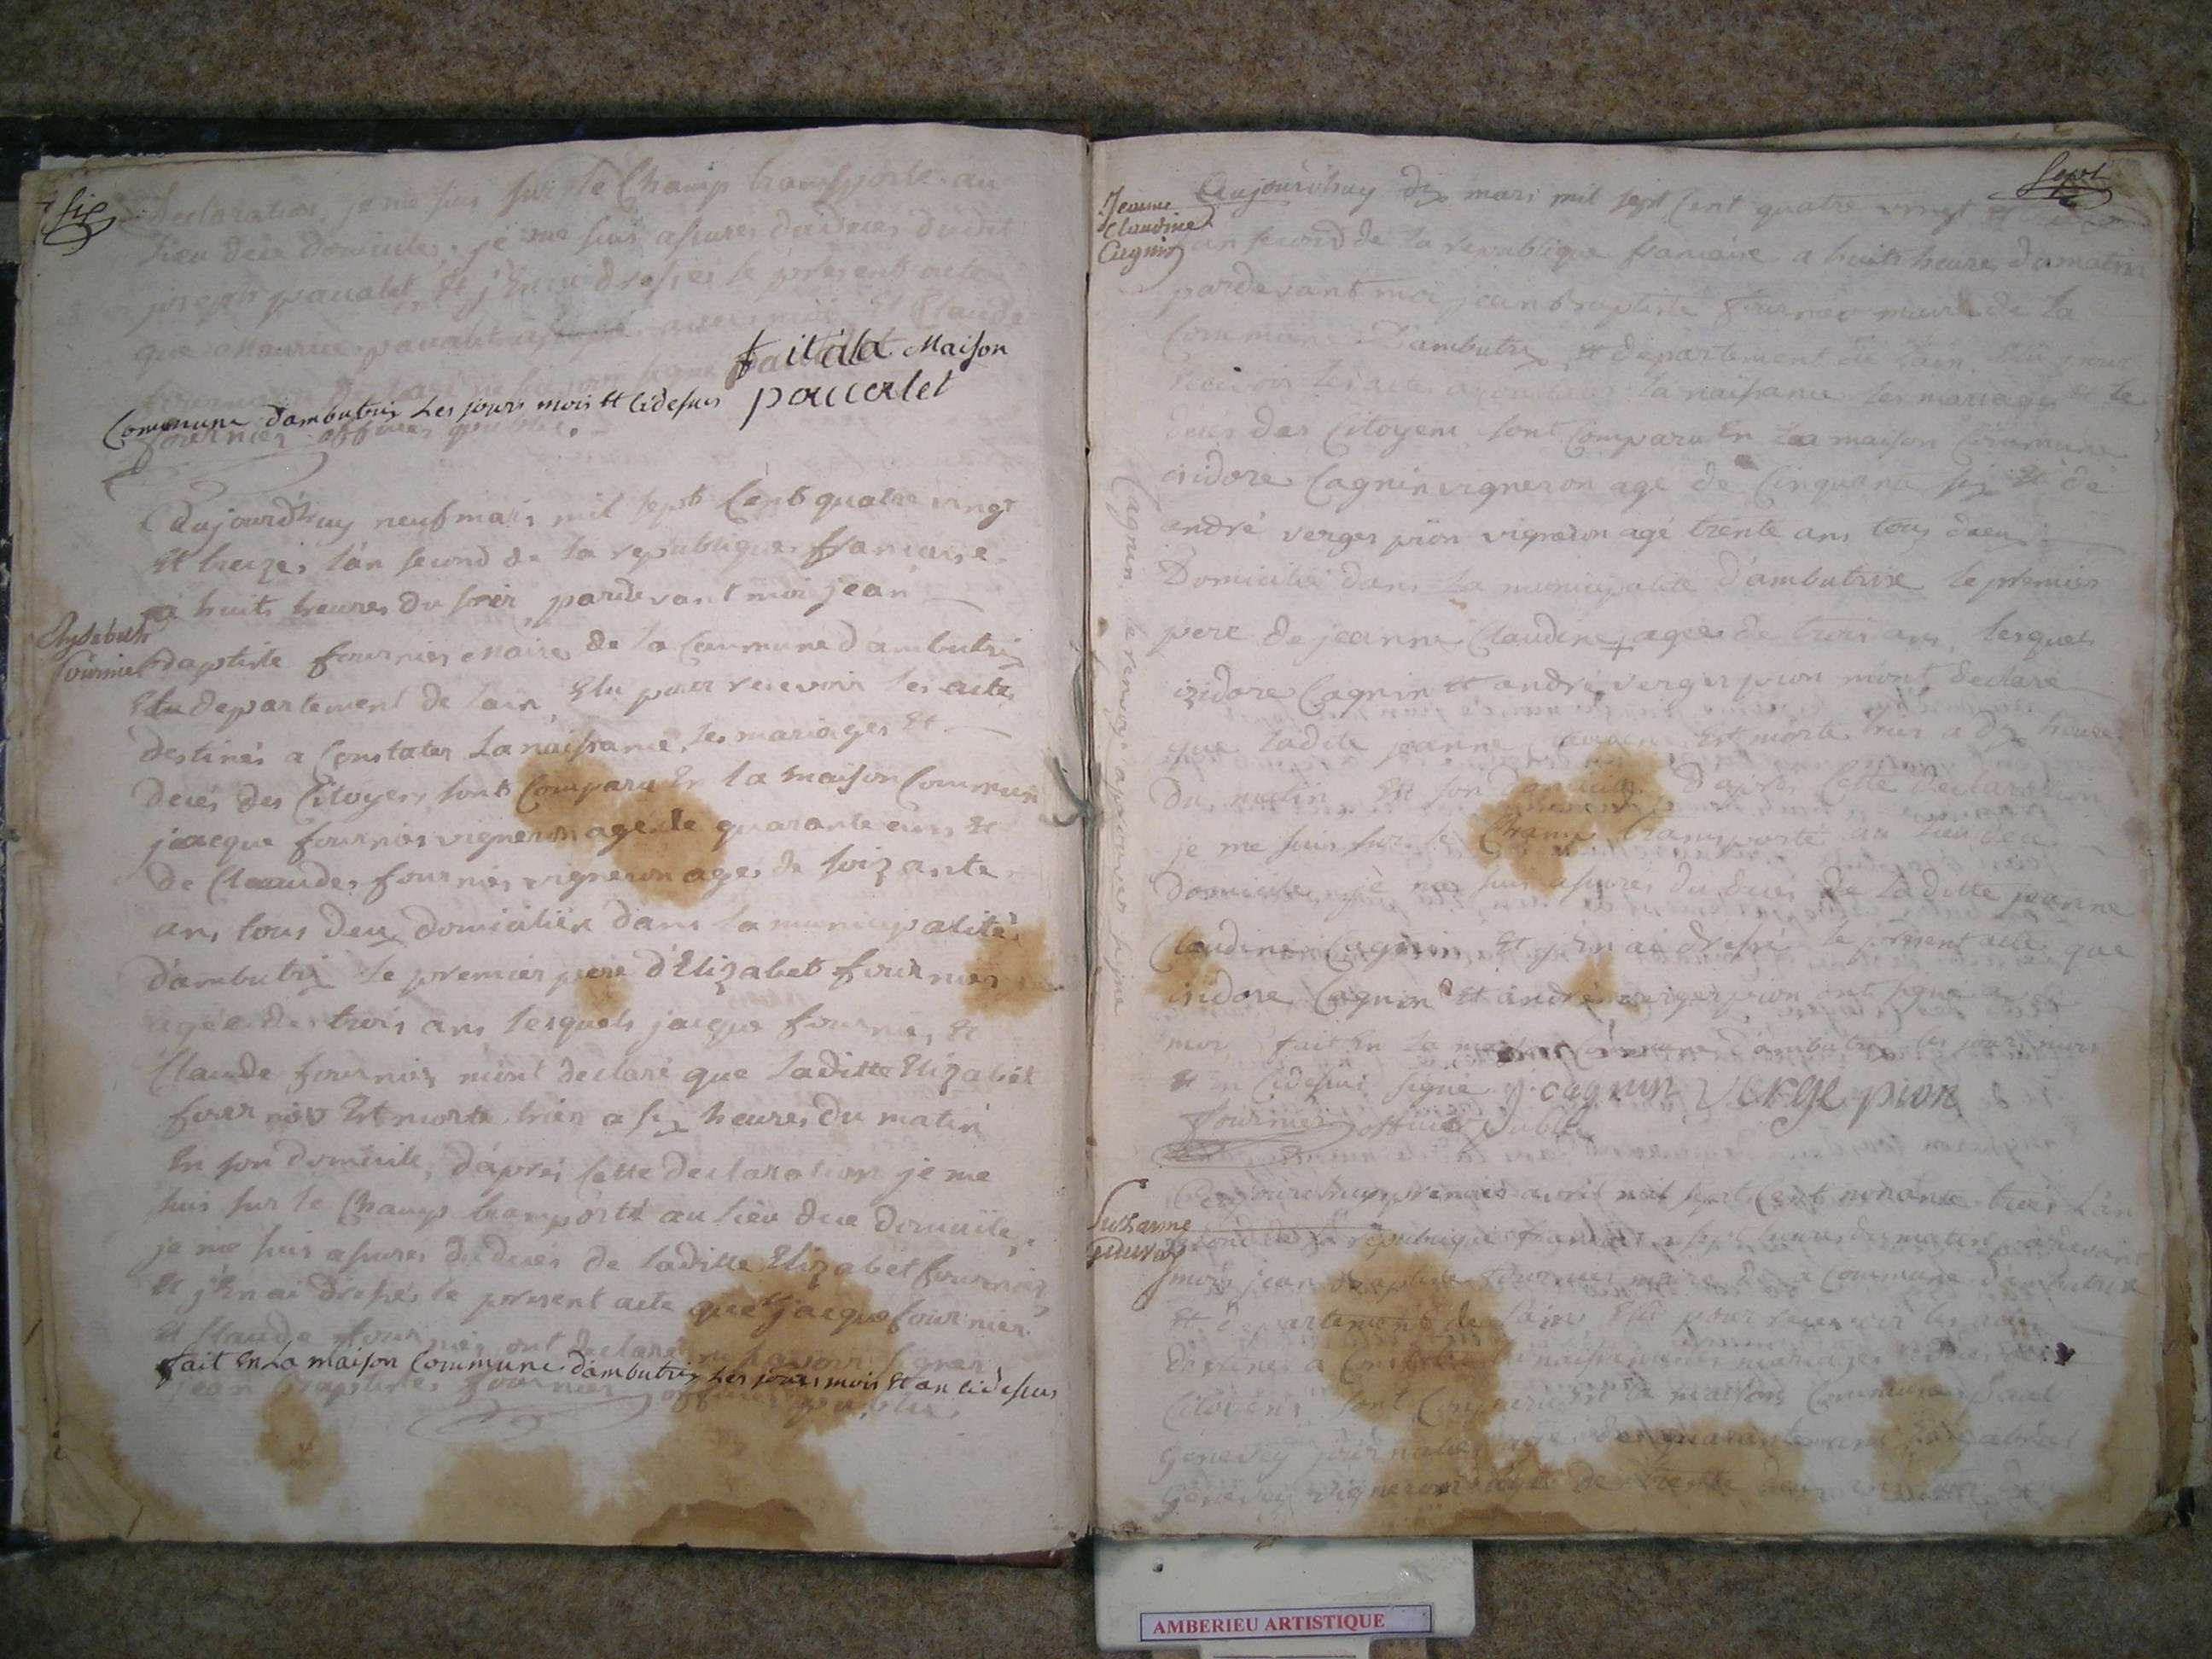 Six
declaration, je me suis sur le Champ transporté au
lieu de domicile, je me suis assures du deces dudit
joseph paucalet, Et j'En ai dresser le present acte
que Maurice paucalet avec moi Et Claude
fait a la Maison
Commune dambutrix Les jours mois Et cidesus paucalet
fournier officier public.
Aujourdhuy neuf mars mil sept Cent quatre vingt
Et treize, l'an second de la republique francaise
a huits heures du soir, pardevant moi jean
Elysabeth
fournier
Baptiste fournier Maire de la Commune dambutrix
Et du departement de lain, Elu pour recevoir les actes
destinés a Constater La naissance, les mariages Et
decés des Citoyens sont Comparu En la maison Commune
jacque fournier vigneron age de quarante ans Et
de Claudes fournier vigneron ages de soizante
ans tous deux domiciliés dans la municipalité
dambutrix le premier pere d'Elizabet fournier
agée de trois ans lesquels jacque fournier Et
Claude fournier mont declaré que laditte Elizabet
fournier Est morte hier a six heures du matin
En son domicile, d'apres Cette declaration je me
suis sur le Champ transporté au lieu de domicile,
je me suis assures du decés de laditte Elizabet fournier
Et j'En ai dressés le present acte que jacque fournier
Et Claude fournier ont declaré ne savoir signer
fait En La maison Commune dambutrix Les jours mois Et an cidesus
jean Baptiste fournier officier public.
Sept
Jeanne
Claudine
Cagnin
Aujourdhuy dix mars mil sept Cent quatre vingt et
l'an second de la republique francaise a huits heures du matin
pardevant moi jean Baptiste fournier maire de la
Commune D'ambutrix Et departement de Lain, Elu pour
recevoir les actes a la naissance les mariages Et le
deces des Citoyens sont Comparu En La maison Commune
isidore Cagnin vigneron age de Cinquante six Et de
andré verger pion vigneron agé trente ans tous deux
Domicilié dans La municipalité D'ambutrix le premier
pere de jeanne Claudine + agée de trois ans, lesquels
izidore Cagnin Et andré verger pion mont declaré
que ladite jeanne Claudine Est morte hier a dix heures
du matin En son domicile D'apres Cette declaration
je me suis sur le Champ transporté au lieu de
domicile, je me suis assurés du decés de laditte jeanne
Claudine Cagnin Et j'En ai dressé le present acte que
isidore Cagnin Et andré verger pion ont signé avec
moi, fait En La maison Commune d'ambutrix les jours mois
Et an cidesus signé j. cagnin verge pion
fournier officier public
+ Cagnin, le renvoy aprouver signe
Suzanne
Genevay
Aujourdhuy premier avril mil sept Cent nonante trois L'an
second de la republique francaise a sept heures du matin pardevant
moi jean Baptiste fournier maire de la Commune d'ambutrix
Et departement de lain, Elu pour recevoir les actes
destinés a Constater la naissance les mariages
Citoyens sont Comparu En la maison Commune paul
Genevey journalier agé de quarante ans
Genevey vigneron agé de trente
AMBERIEU ARTISTIQUE